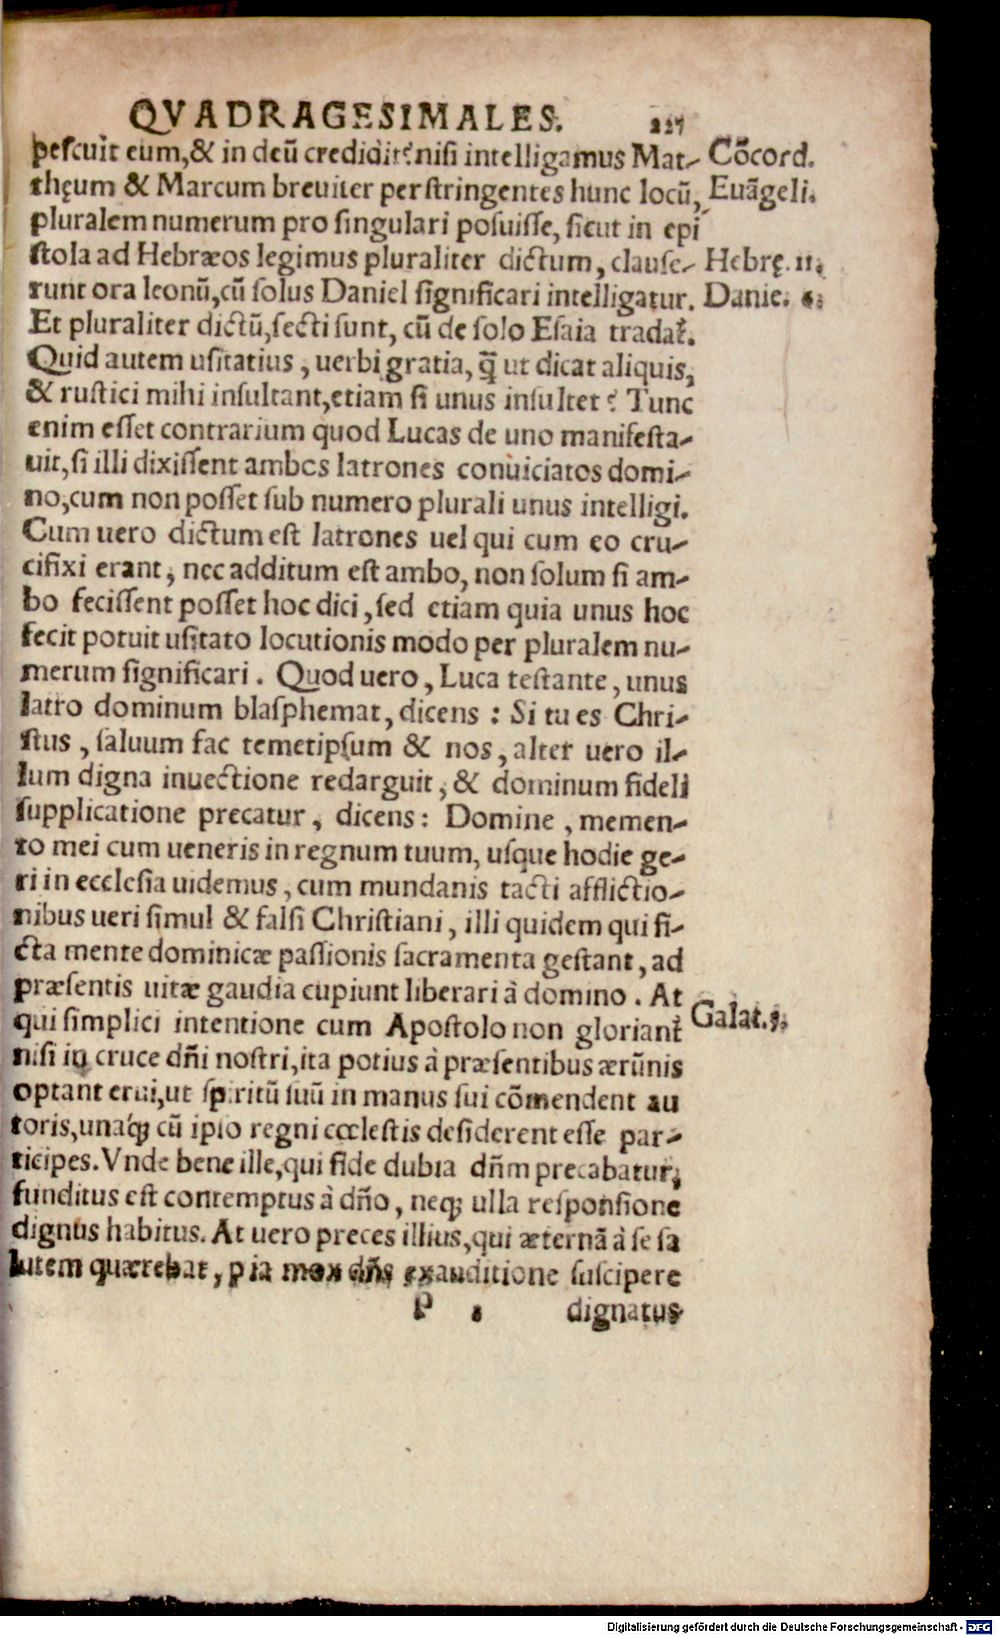 QVADRAGESIMALES. 227
pescuit eum,& in deũ credidit? nisi intelligamus Mat- Cõcord.
thęum & Marcum breuiter perstringentes hunc locũ, Euãgeli.
pluralem numerum pro singulari posuisse, sicut in epi
stola ad Hebræos legimus pluraliter dictum, clause- Hebrę. 11.
runt ora leonũ, cũ solus Daniel significari intelligatur. Danie. 6.
Et pluraliter dictũ, secti sunt, cũ de solo Esaia tradat̃.
Quid autem usitatius, uerbi gratia, q̃ ut dicat aliquis,
& rustici mihi insultant, etiam si unus insultet? Tunc
enim esset contrarium quod Lucas de uno manifesta-
uit, si illi dixissent ambos latrones conuiciatos domi-
no, cum non posset sub numero plurali unus intelligi.
Cum uero dictum est latrones uel qui cum eo cru-
cifixi erant, nec additum est ambo, non solum si am-
bo fecissent posset hoc dici, sed etiam quia unus hoc
fecit potuit usitato locutionis modo per pluralem nu-
merum significari. Quod uero, Luca testante, unus
latro dominum blasphemat, dicens : Si tu es Chri-
stus, saluum fac temetipsum & nos, alter uero il-
lum digna inuectione redarguit, & dominum fideli
supplicatione precatur, dicens: Domine, memen-
to mei cum ueneris in regnum tuum, usque hodie ge-
ri in ecclesia uidemus, cum mundanis tacti afflictio-
nibus ueri simul & falsi Christiani, illi quidem qui fi-
cta mente dominicæ passionis sacramenta gestant, ad
præsentis uitæ gaudia cupiunt liberari à domino. At
qui simplici intentione cum Apostolo non gloriant̃ Galat.
nisi in cruce dñi nostri, ita potius à præsentibus ærũnis
optant erui, ut spiritũ suũ in manus sui cõmendent au
toris, unaq; cũ ipso regni cœlestis desiderent esse par-
ticipes. Vnde bene ille, qui fide dubia dñm precabatur,
funditus est contemptus à dño, neq; ulla responsione
dignus habitus. At uero preces illius, qui æternã à se sa
lutem quærebat, pia mox dñs exauditione suscipere
P dignatus
Digitalisierung gefördert durch die Deutsche Forschungsgemeinschaft - DFG